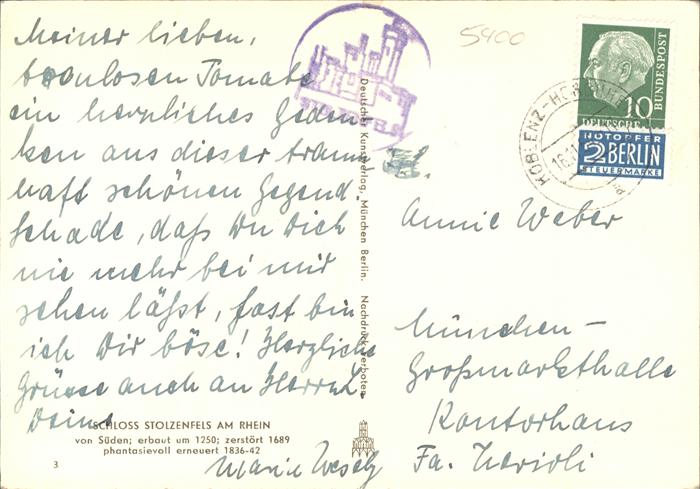 Meiner lieben,
Tomate
ein herzliches Geden-
ken aus dieser traum-
haft schönen Gegend.
Schade, daß Du Dich
nie mehr bei mir
sehen läßt, fast bin
ich Dir böse! Herzliche
Grüsse auch an Herrn
Deine
Marie
SCHLOSS STOLZENFELS AM RHEIN
von Süden; erbaut um 1250; zerstört 1689
phantasievoll erneuert 1836-42
3
Deutscher Kunstverlag, München Berlin. Nachdruck verboten
5400
10
DEUTSCHE
BUNDESPOST
NOTOPFER
2 BERLIN
STEUERMARKE
KOBLENZ-
Annie Weber
München-
Großmarkthalle
Kontorhaus
Fa.